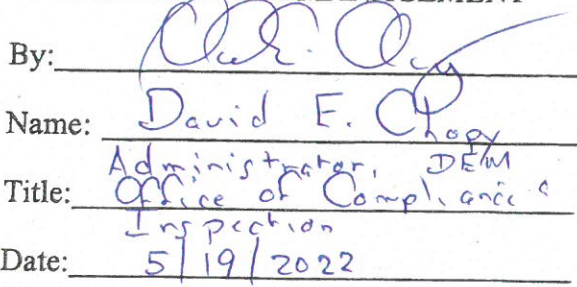 By:
Name: David E. Chopy
Administrator, DEM
Title: Office of Compliance &
Inspection
Date: 5/19/2022